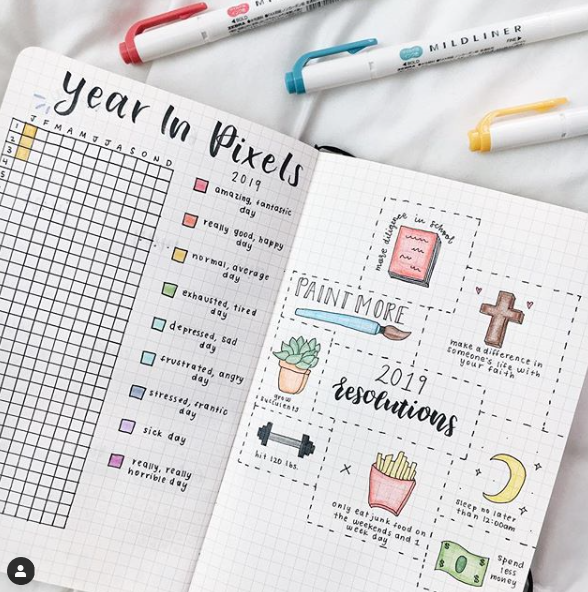 ZEBRA
MILDLINER
Year In Pixels
2019
J F M A M J J A S O N D
1
2
3
4
5
amazing, fantastic
day
really good, happy
day
normal, average
day
exhausted, tired
day
depressed, sad
day
frustrated, angry
day
stressed, frantic
day
sick day
really, really
horrible day
more diligence in school
PAINT MORE
make a difference in
someone's life with
your faith
grow
succulents
2019
resolutions
hit 120 lbs.
only eat junk food on
the weekends and 1
week day
sleep no later
than 12:00am
spend
less
money